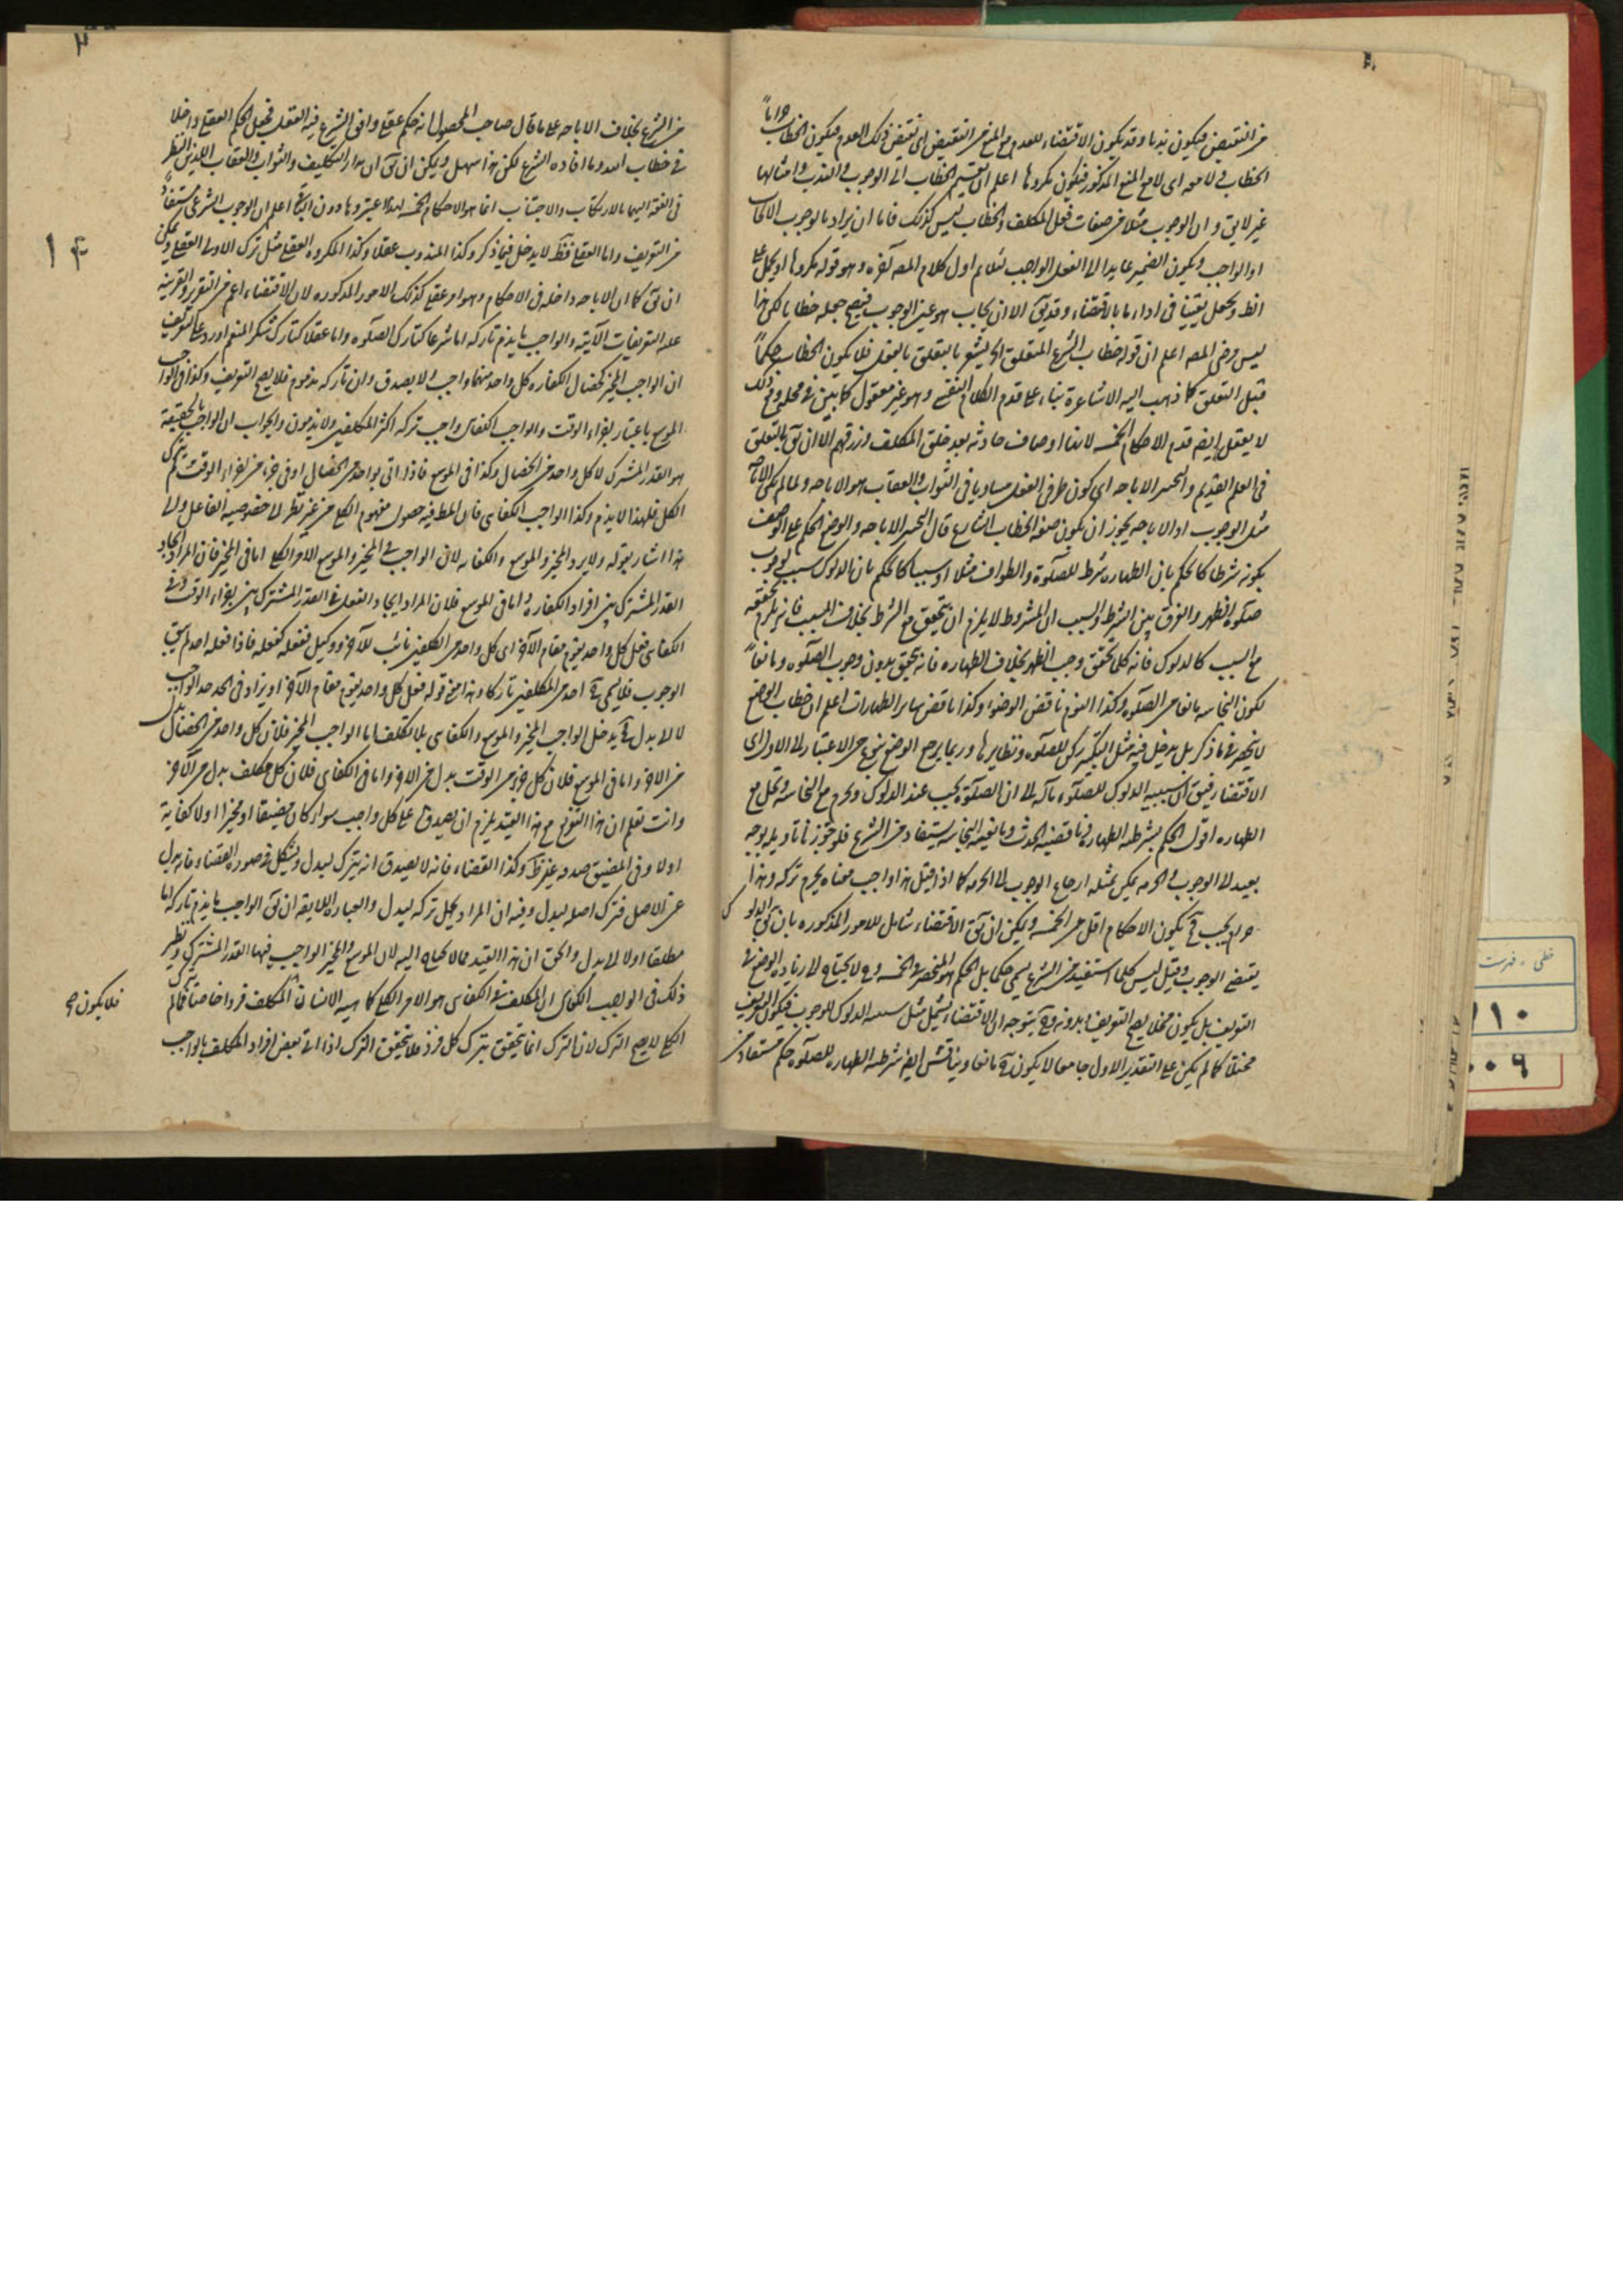 من النقيض فيكون ندبا وقد يكون الاقتضاء للعدم مع المنع من النقيض اى نقيض ذلك العدم فيكون الخطاب حراما
الخطاب لا معه اى لا مع المنع المذكور فيكون مكروها اعلم ان تقسيم الخطاب الى الوجوب والندب وامثالها
غير لايق و ان الوجوب مثلا من صفات فعل المكلف والخطاب ليس كذلك فاما ان يراد بالوجوب الايجاب
او الواجب ويكون الضمير عايدا الى الفعل الواجب اول كلام المصه آخره وهو قوله مكروها او يحمل على
فى اداء ما بالاقتضاء وقد يق الا ان يجاب هو عين الوجوب فيصح جعله خطابا لكن هذا
ليس المصه اعلم ان قوله خطاب الشرع المتعلق الخ يشعر بالتعلق بالفعل فلا يكون الخطاب حكما
قبل التعلق كما ذهب اليه الاشاعرة بناء على قدم الكلام النفسى وهو غير معقول كما بين فى محله ومع ذلك
لا يعقل ايضا قدم الاحكام الخمسة لانها اوصاف حادثه بعد خلق المكلف الا ان يق بالتعلق
فى العلم القديم والتخيير الاباحه اى كون طرفى الفعل مساويا فى الثواب والعقاب هو الاباحه ولما لم يكن الاباحه
مثل الوجوب اذ الاباحه يجوز ان يكون صفه الخطاب الشارع قال التخيير الاباحه والوضع الحكم على الوصف
بكونه شرطا كالحكم بان الطهاره شرط للصلوة والطواف مثلا او سببا كالحكم بان الدلوك سبب لوجوب
صلوة الظهر والفرق بين الشرط والسبب ان المشروط لا يلزم ان يتحقق مع الشرط بخلاف المسبب فانه يلزم تحققه
مع السبب كالدلوك فانه كلما تحقق وجب الظهر بخلاف الطهاره فانه يتحقق بدون وجوب الصلوه ومانعا
ككون النجاسه مانعا من الصلوه وكذا النوم ناقض الوضوء وكذا ناقض ساير الطهارات اعلم ان خطاب الوضع
لا ينحصر فى ما ذكر بل يدخل فيه مثل التكبير ركن للصلوه ونظايرها وربما يرجع الوضع بنوع من الاعتبار الى الاول اى
الاقتضاء فيق ان سببيه الدلوك للصلوه مآله الى ان الصلوة يجب عند الدلوك ويحرم مع النجاسه ويحل مع
الطهاره اقول الحكم بشرطيه الطهاره وناقضيه الحدث ومانعيه النجاسه يستفاد من الشرع فلو جوزنا تاويله بوجه
بعيد الى الوجوب والحرمه يمكن بمثله ارجاع الوجوب الى الحرمه كما اذا قيل هذا واجب معناه يحرم تركه وهذا
حرام يجب يكون الاحكام اقل من الخمسة ويمكن ان يق الاقتضاء شامل للامور المذكوره بان يق الدلوك
يقتضى الوجوب وقيل ليس كلما استفيد من الشرع يسمى حكما بل الحكم هو المنحصر فى الخمسة ولا يحتاج الى زياده الوضع فى
التعريف بل يكون مخلا يصح التعريف بدونه يتوجه ان الاقتضاء يشمل مثل سببيه الدلوك للوجوب فيكون التعريف
مختلا كما لم يكن على التقدير الاول جامعا لا يكون مانعا ويناقش ايضا شرطيه الطهاره للصلوه حكم مستفاد من
١٤
من الشرع بخلاف الاباحه على ما قال صاحب المحصول انه حكم عقلى وافق الشرع فيه العقل فجعل الحكم العقلى داخلا
فى خطاب الله وما افاده الشرع لكن هذا سهل ويمكن ان يق ان مدار التكليف والثواب والعقاب اللذين النظر
فى الفقه اليهما بالارتكاب والاجتناب انما هو الاحكام الخمسه لهذا اعتبروها دون البواقى اعلم ان الوجوب الشرعى مستفاد
من التعريف واما العقلى فقط لا يدخل فيما ذكر وكذا المندوب عقلا وكذا المكروه العقلى مثل ترك الاولى العقلى ويمكن
ان يق كما ان الاباحه داخله فى الاحكام وهو امر عقلى كذلك الامور المذكوره لان الاقتضاء اعم من التقرير والقرينه
عليه التعريفات الآتيه والواجب ما يذم تاركه اما شرعا كتارك الصلوه واما عقلا كتارك شكر المنعم اورد على التعريف
ان الواجب المخير كخصال الكفاره كل واحد منها واجب ولا يصدق وان تاركه مذموم فلا يصح التعريف وكذا فى الواجب
الموسع باعتبار اجزاء الوقت والواجب الكفائى واجب تركه اكثر المكلفين ولا يذمون والجواب ان الواجب بالحقيقه
هو القدر المشترك لا كل واحد من الخصال وكذا فى الموسع فاذا اتى بواحد من الخصال او فى جزء من اجزاء الوقت لم يترك
الكل فلهذا لا يذم وكذا الواجب الكفائى فان المطلوب فيه حصول مفهوم الكلى من غير نظر الى خصوصيه الفاعل والى
هذا اشار بقوله ولا يرد المخير والموسع والكفايه لان الواجب فى المخير والموسع الامر الكلى اما فى المخير فان المراد ايجاد
القدر المشترك بين افراد الكفاره واما فى الموسع فلان المراد ايجاد الفعل فى القدر المشترك بين اجزاء الوقت وفى
الكفائى فعل كل واحد يقوم مقام الآخر اى كل واحد من المكلفين نائب للآخر ووكيل ففعله كفعله فاذا فعله احدهم
الوجوب فلا يسمى احد من المكلفين تاركا وهذا معنى قوله فعل كل واحد يقوم مقام الآخر او يزاد فى الحد حد الواجب
لا الى بدل يدخل الواجب المخير والموسع والكفائى بلا تكلف اما الواجب المخير فلان كل واحد من الخصال بدل
من الآخر واما فى الموسع فلان كل جزء من الوقت بدل من الآخر واما فى الكفائى فلان كل مكلف بدل من الآخر
وانت تعلم ان هذا التعريف مع هذا القيد يلزم ان يصدق على كل واجب سواء كان مضيقا او مخيرا اولا كفاية
اولا وفى المضيق صدقه غير ظ وكذا القضاء فانه لا يصدق انه يترك لبدل ويشكل فى صوره القضاء فانه بدل
عن الاصل فترك اصله لبدل وفيه ان المراد يحل تركه لبدل والعباره اللايقه ان يق الواجب ما يذم تاركه اما
مطلقا او لا الى بدل والحق ان هذا القيد مما لا يحتاج اليه لان الموسع والمخير الواجب فيهما القدر المشترك ونظير
ذلك فى الواجب الكفائى ان المكلف فى الكفائى هو الامر الكلى كماهيه الانسان المكلف فردا خاصا فما لم يترك
الكلى لا يصح الترك لان الترك انما يتحقق بترك كل فرد فلا يتحقق الترك اذا اتى بعض افراد المكلف بالواجب
فلا يكون
خطى ، فهرست
١١٠
٠٠٦